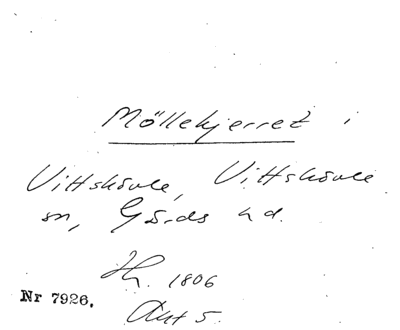 Möllekjerret i
Vittskövle, Vittskövle
sn, Gärds hd.
Hr. 1806
Nr 7926.
Akt 5.